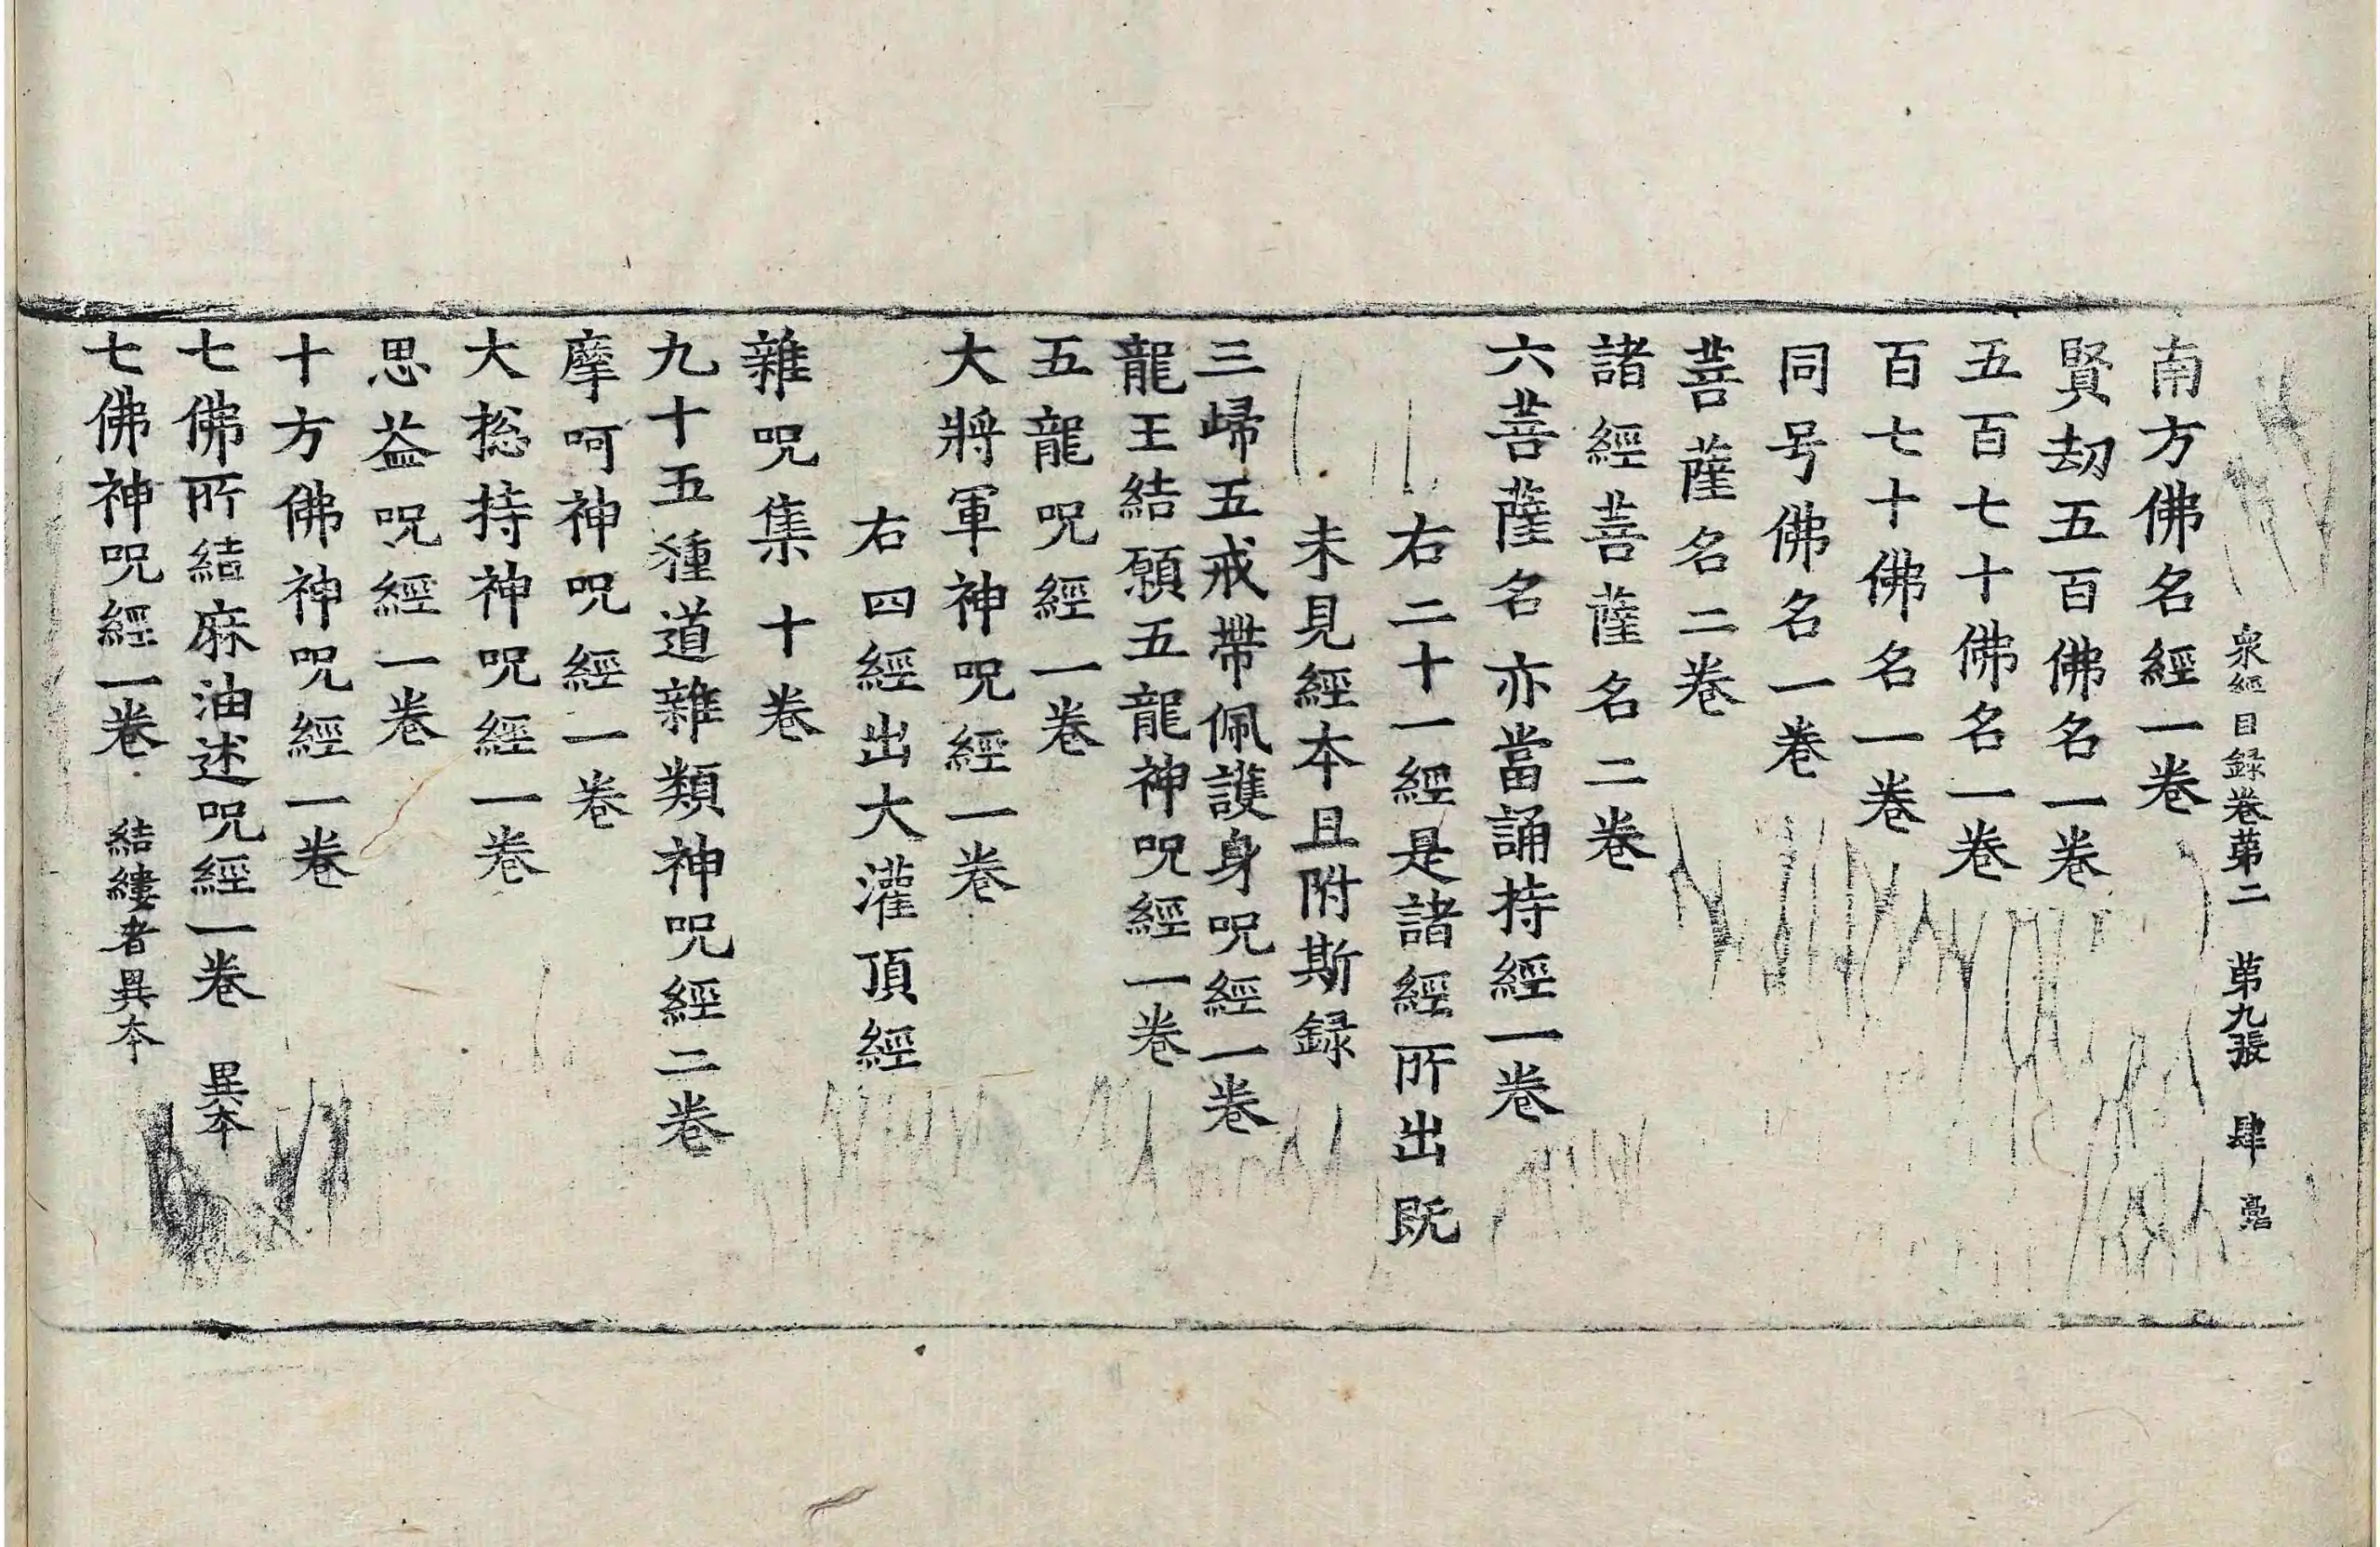 衆經目録卷苐二　苐九張　肆
南方佛名經一卷
賢劫五百佛名一卷
五百七十佛名一卷
百七十佛名一卷
同号佛名一卷
菩薩名二卷
諸經菩薩名二卷
六菩薩名亦當誦持經一卷
右二十一經是諸經所出既
未見經本且附斯録
三歸五戒帶佩護身呪經一卷
龍王結願五龍神呪經一卷
五龍呪經一卷
大將軍神呪經一卷
右四經出大灌頂經
雜呪集十卷
九十五種道雜類神呪經二卷
摩呵神呪經一卷
大捴持神呪經一卷
思益呪經一卷
十方佛神呪經一卷
七佛所結麻油述呪經一卷　異本
七佛神呪經一卷　結縷者異本